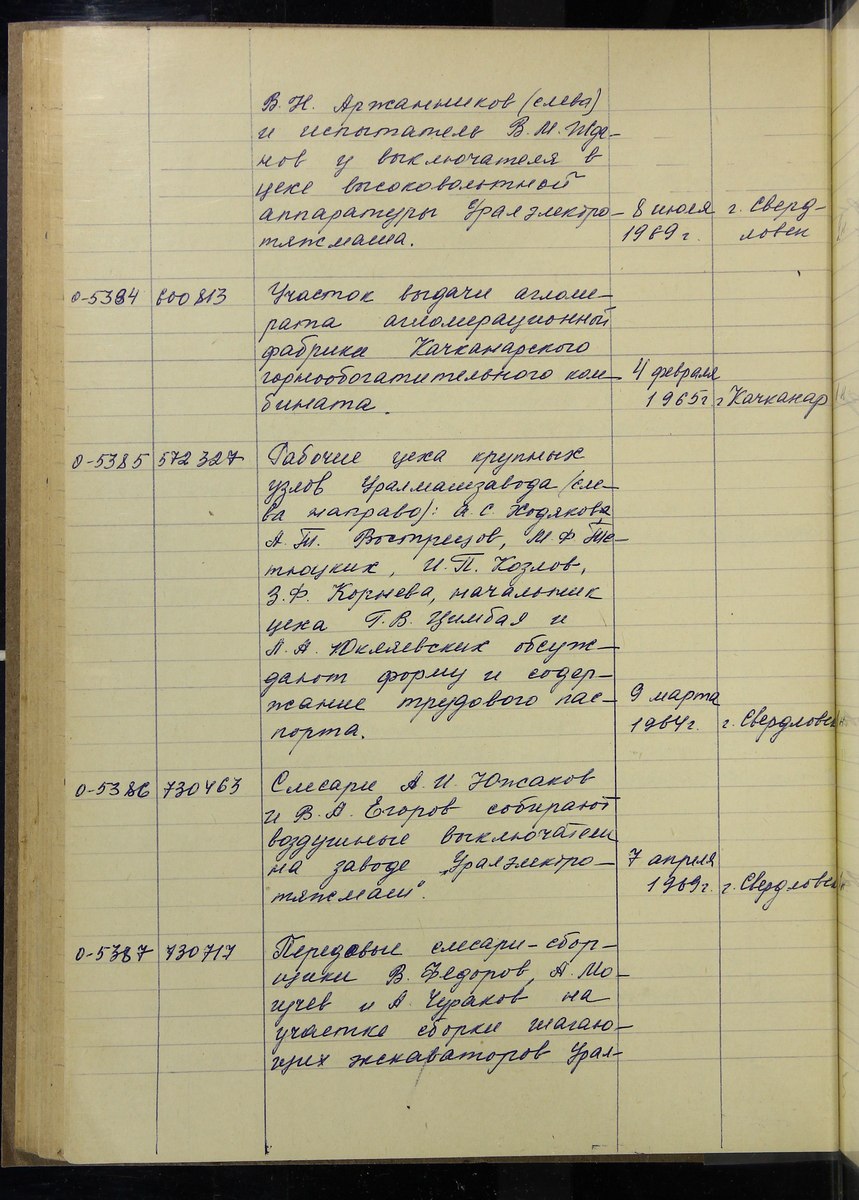 В.Н. Аржанников (слева)
и испытатель В.М. Жда-
нов у выключателя в
цехе высоковольтной
аппаратуры Уралэлектро- 8 июля г. Сверд-
тяжмаша. 1969 г. ловск
0-5384 600813 Участок выдачи агломе-
рата агломерационной
фабрики Качканарского
горнообогатительного ком- 4 февраля
бината. 1965 г г Качканар
0-5385 572327 Рабочие цеха крупных
узлов Уралмашзавода (сле-
ва направо): А.С. Ходякова,
А.Т. Вострецов, М.Ф.
И.П. Козлов,
З.Ф. Корнева, начальник
цеха Г.В. Цимбал и
Л.А. Юкляевских обсуж-
дают форму и содер-
жание трудового пас- 9 марта
порта. 1964 г. г. Свердловск
0-5386 730463 Слесари А.И. Южаков
и В.А. Егоров собирают
воздушные выключатели
на заводе „Уралэлектро- 7 апреля
тяжмаш". 1969 г. г. Свердловск
0-5387 730717 Передовые слесари-сбор-
щики В. Федоров, А. Мо-
гучев и А. Чураков на
участке сборки шагаю-
щих экскаваторов Урал-